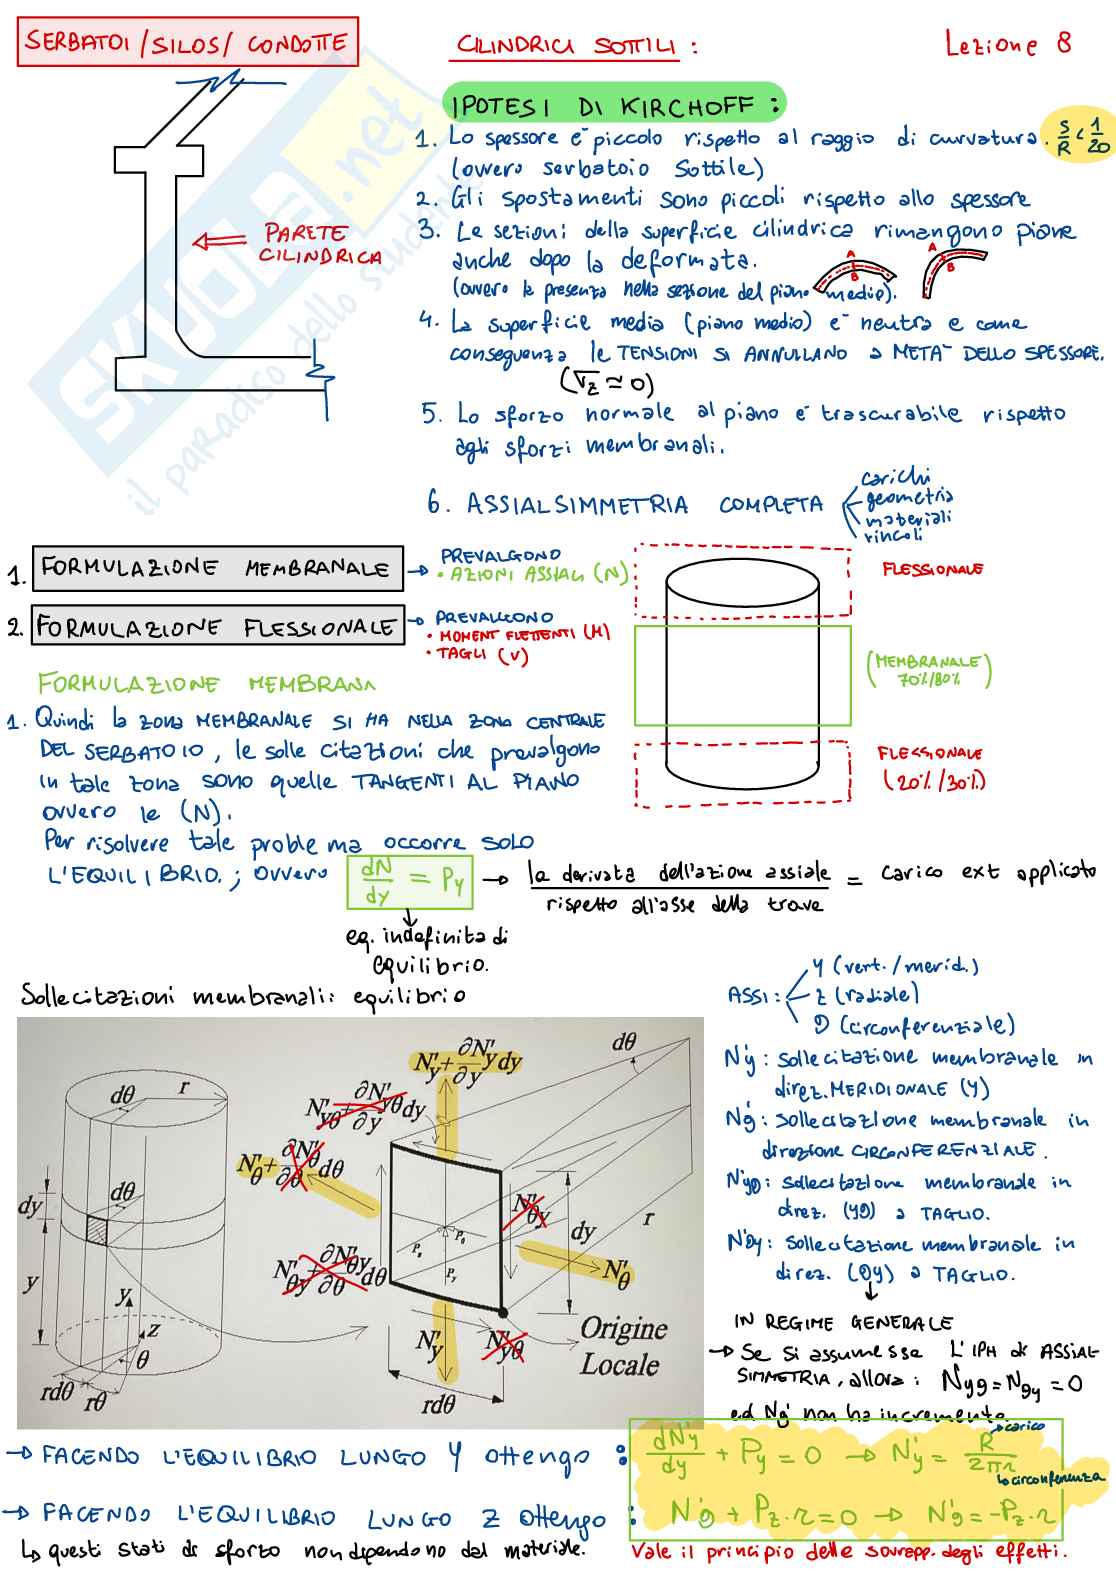 SERBATOI / SILOS / CONDOTTE
CILINDRICI SOTTILI :
Lezione 8
IPOTESI DI KIRCHOFF :
1. Lo spessore è piccolo rispetto al raggio di curvatura. S/R < 1/20
(ovvero serbatoio sottile)
2. Gli spostamenti sono piccoli rispetto allo spessore
3. Le sezioni della superficie cilindrica rimangono piane
anche dopo la deformata.
(ovvero la presenza nella sezione del piano medio).
A
B
A
B
4. La superficie media (piano medio) è neutra e come
conseguenza le TENSIONI SI ANNULLANO a METÀ DELLO SPESSORE.
(σz ≃ 0)
5. Lo sforzo normale al piano è trascurabile rispetto
agli sforzi membranali.
6. ASSIALSIMMETRIA COMPLETA
carichi
geometria
materiali
vincoli
PARETE
CILINDRICA
SKUOLA.net
il paradiso dello studente
1. FORMULAZIONE MEMBRANALE → PREVALGONO
• AZIONI ASSIALI (N)
2. FORMULAZIONE FLESSIONALE → PREVALGONO
• MOMENT FLETTENTI (M)
• TAGLI (V)
FLESSIONALE
(MEMBRANALE
70%/80%)
FLESSIONALE
(20%/30%)
FORMULAZIONE MEMBRANA
1. Quindi la zona MEMBRANALE SI HA NELLA ZONA CENTRALE
DEL SERBATOIO, le sollecitazioni che prevalgono
in tale zona SONO quelle TANGENTI AL PIANO
ovvero le (N).
Per risolvere tale problema occorre SOLO
L'EQUILIBRIO. ; ovvero dN/dy = Py → la derivata dell'azione assiale rispetto all'asse della trave = carico ext applicato
eq. indefinita di
equilibrio.
Sollecitazioni membranali: equilibrio
ASSI :
y (vert./merid.)
z (radiale)
θ (circonferenziale)
N'y : sollecitazione membranale in
direz. MERIDIONALE (y)
N'θ : sollecitazione membranale in
direzione CIRCONFERENZIALE.
N'yθ : sollecitazione membranale in
direz. (yθ) a TAGLIO.
N'θy : sollecitazione membranale in
direz. (θy) a TAGLIO.
IN REGIME GENERALE
→ Se si assumesse L'IPH di ASSIAL
SIMMETRIA, allora : Nyθ = Nθy = 0
ed Nθ' non ha incremento.
dθ
r
dθ
dy
y
y
z
θ
rdθ
rθ
N'y + ∂N'y/∂y dy
N'yθ + ∂N'yθ/∂y dy
N'θ + ∂N'θ/∂θ dθ
N'θy + ∂N'θy/∂θ dθ
dθ
N'θy
dy
r
N'θ
Pz
Pθ
Py
N'y
N'yθ
rdθ
Origine
Locale
→ FACENDO L'EQUILIBRIO LUNGO y ottengo : dN'y/dy + Py = 0 → N'y = R/2πr
carico
circonferenza
→ FACENDO L'EQUILIBRIO LUNGO z ottengo : N'θ + Pz · r = 0 → N'θ = -Pz · r
↳ questi stati di sforzo non dipendono dal materiale.
Vale il principio delle sovrapp. degli effetti.